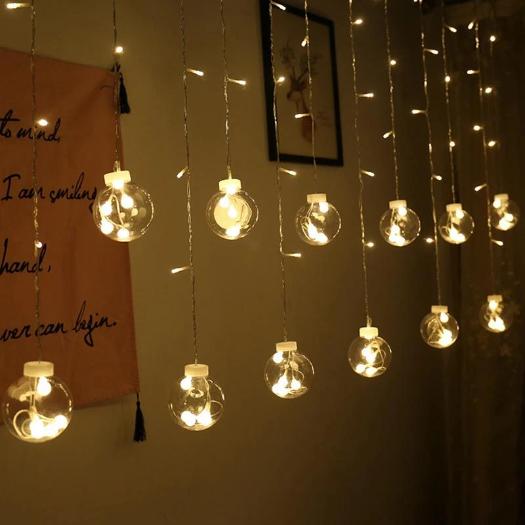 to mind,
I am smiling
hand,
ver can begin.